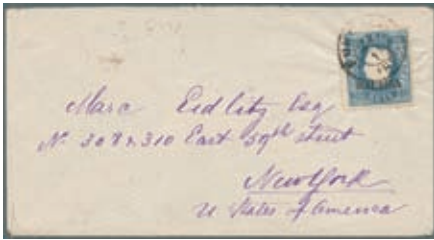 Marc Eidlitz Esq
No 308 & 310 East 59th street
New York
U States of America